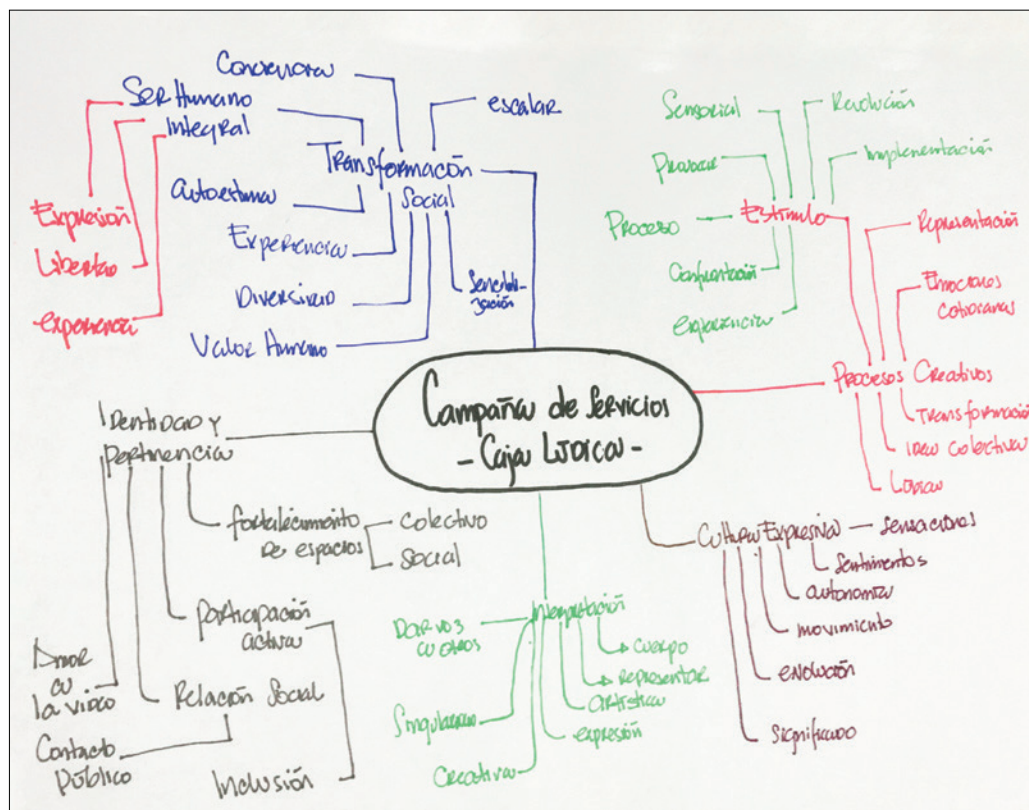 Conciencia
Ser Humano
Integral
escalar
Transformación
Social
Autoestima
Experiencia
Diversidad
Valor Humano
Sensibili-
zación
Expresión
Libertad
experiencia
Sensorial
Revolución
Provocar
Implementación
Proceso
Estimulo
Confrontación
experiencia
Representación
Emociones
cotidianas
Procesos Creativos
Transformación
Idea colectiva
Lúdica
Campaña de Servicios
- Caja Lúdica -
Identidad y
pertinencia
fortalecimiento
de espacios
colectivo
social
participación
activa
Amor
a
la vida
Relación Social
Contacto
Público
Inclusión
Interpretación
Dar voz
a otros
cuerpo
representar
artística
expresión
Singularidad
Creativa
Cultura Expresiva
sensaciones
sentimientos
autonomía
movimiento
evolución
significado